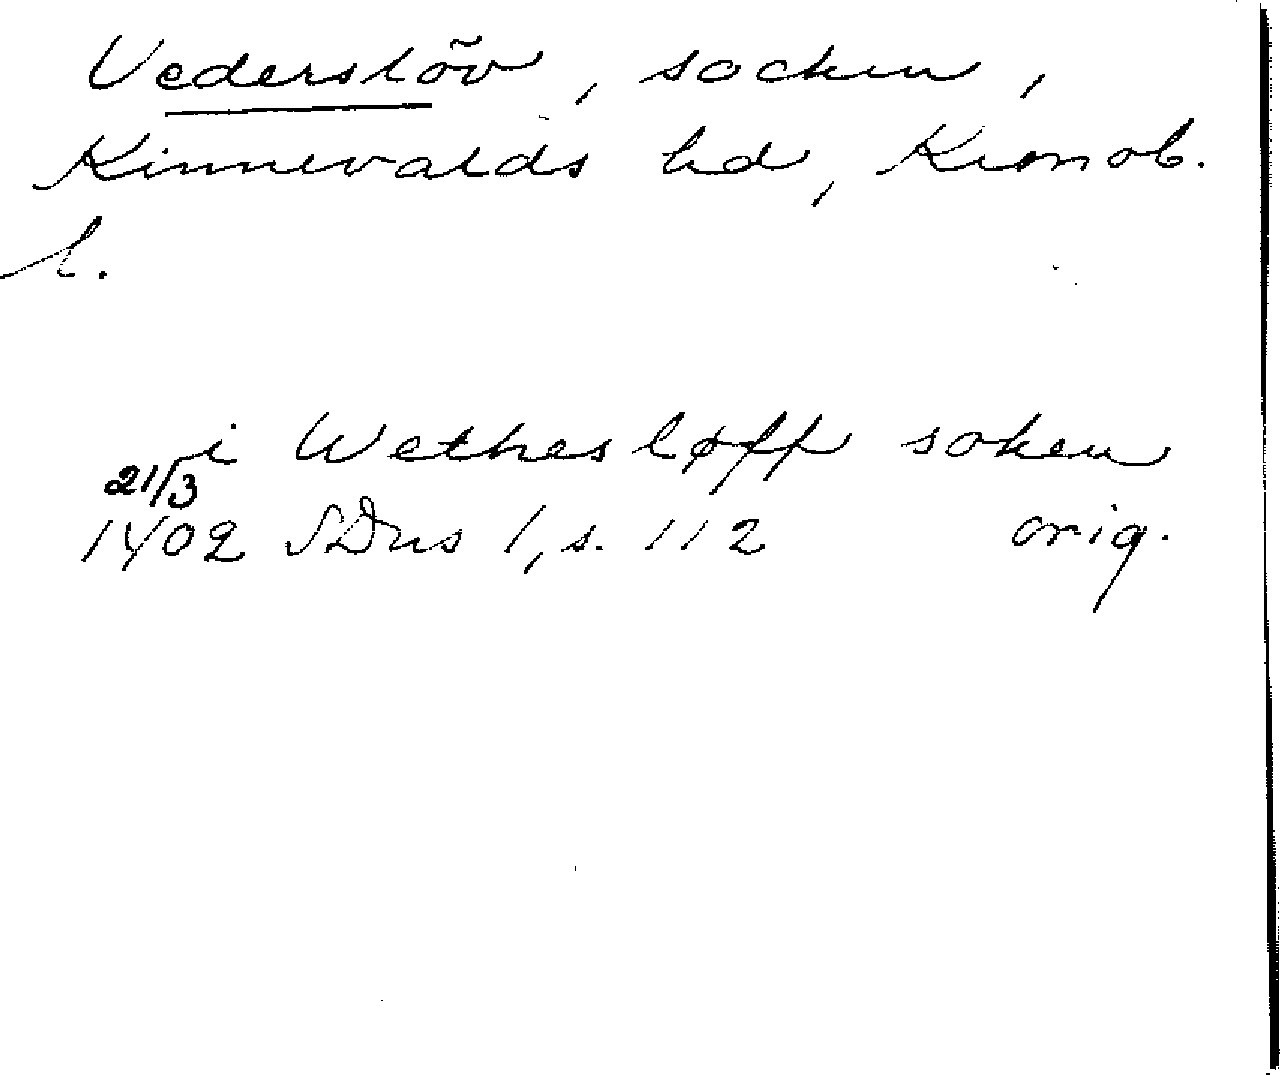 Vederslöv, socken,
Kinnevalds hd, Kronob.
l.
i Wethesløff soken
21/3
1402 SDns 1, s. 112 orig.